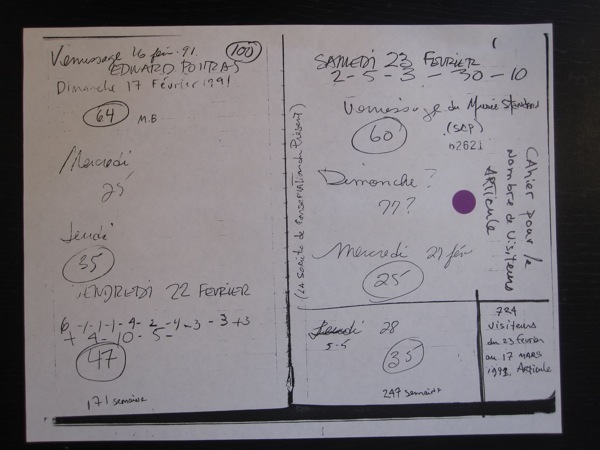 Vernissage 16 fév. 91. (100)
EDWARD POITRAS
Dimanche 17 Février 1991
64 M.B
Mercredi
25
Jeudi
35
VENDREDI 22 FEVRIER
47
171 semaine
SAMEDI 23 FEVRIER
2 - 5 - 3 - 30 - 10
Vernissage du Musée Standard
60 (SCP)
Dimanche ?
77?
Mercredi 27 fév
25
Jeudi 28
5-5
35
247 semaine
(LA Société de Conservation du Présent)
CAhier pour le
Nombre de Visiteurs
ARTICULE
724
visiteurs
du 23 février
au 17 MARS
1991. Articule